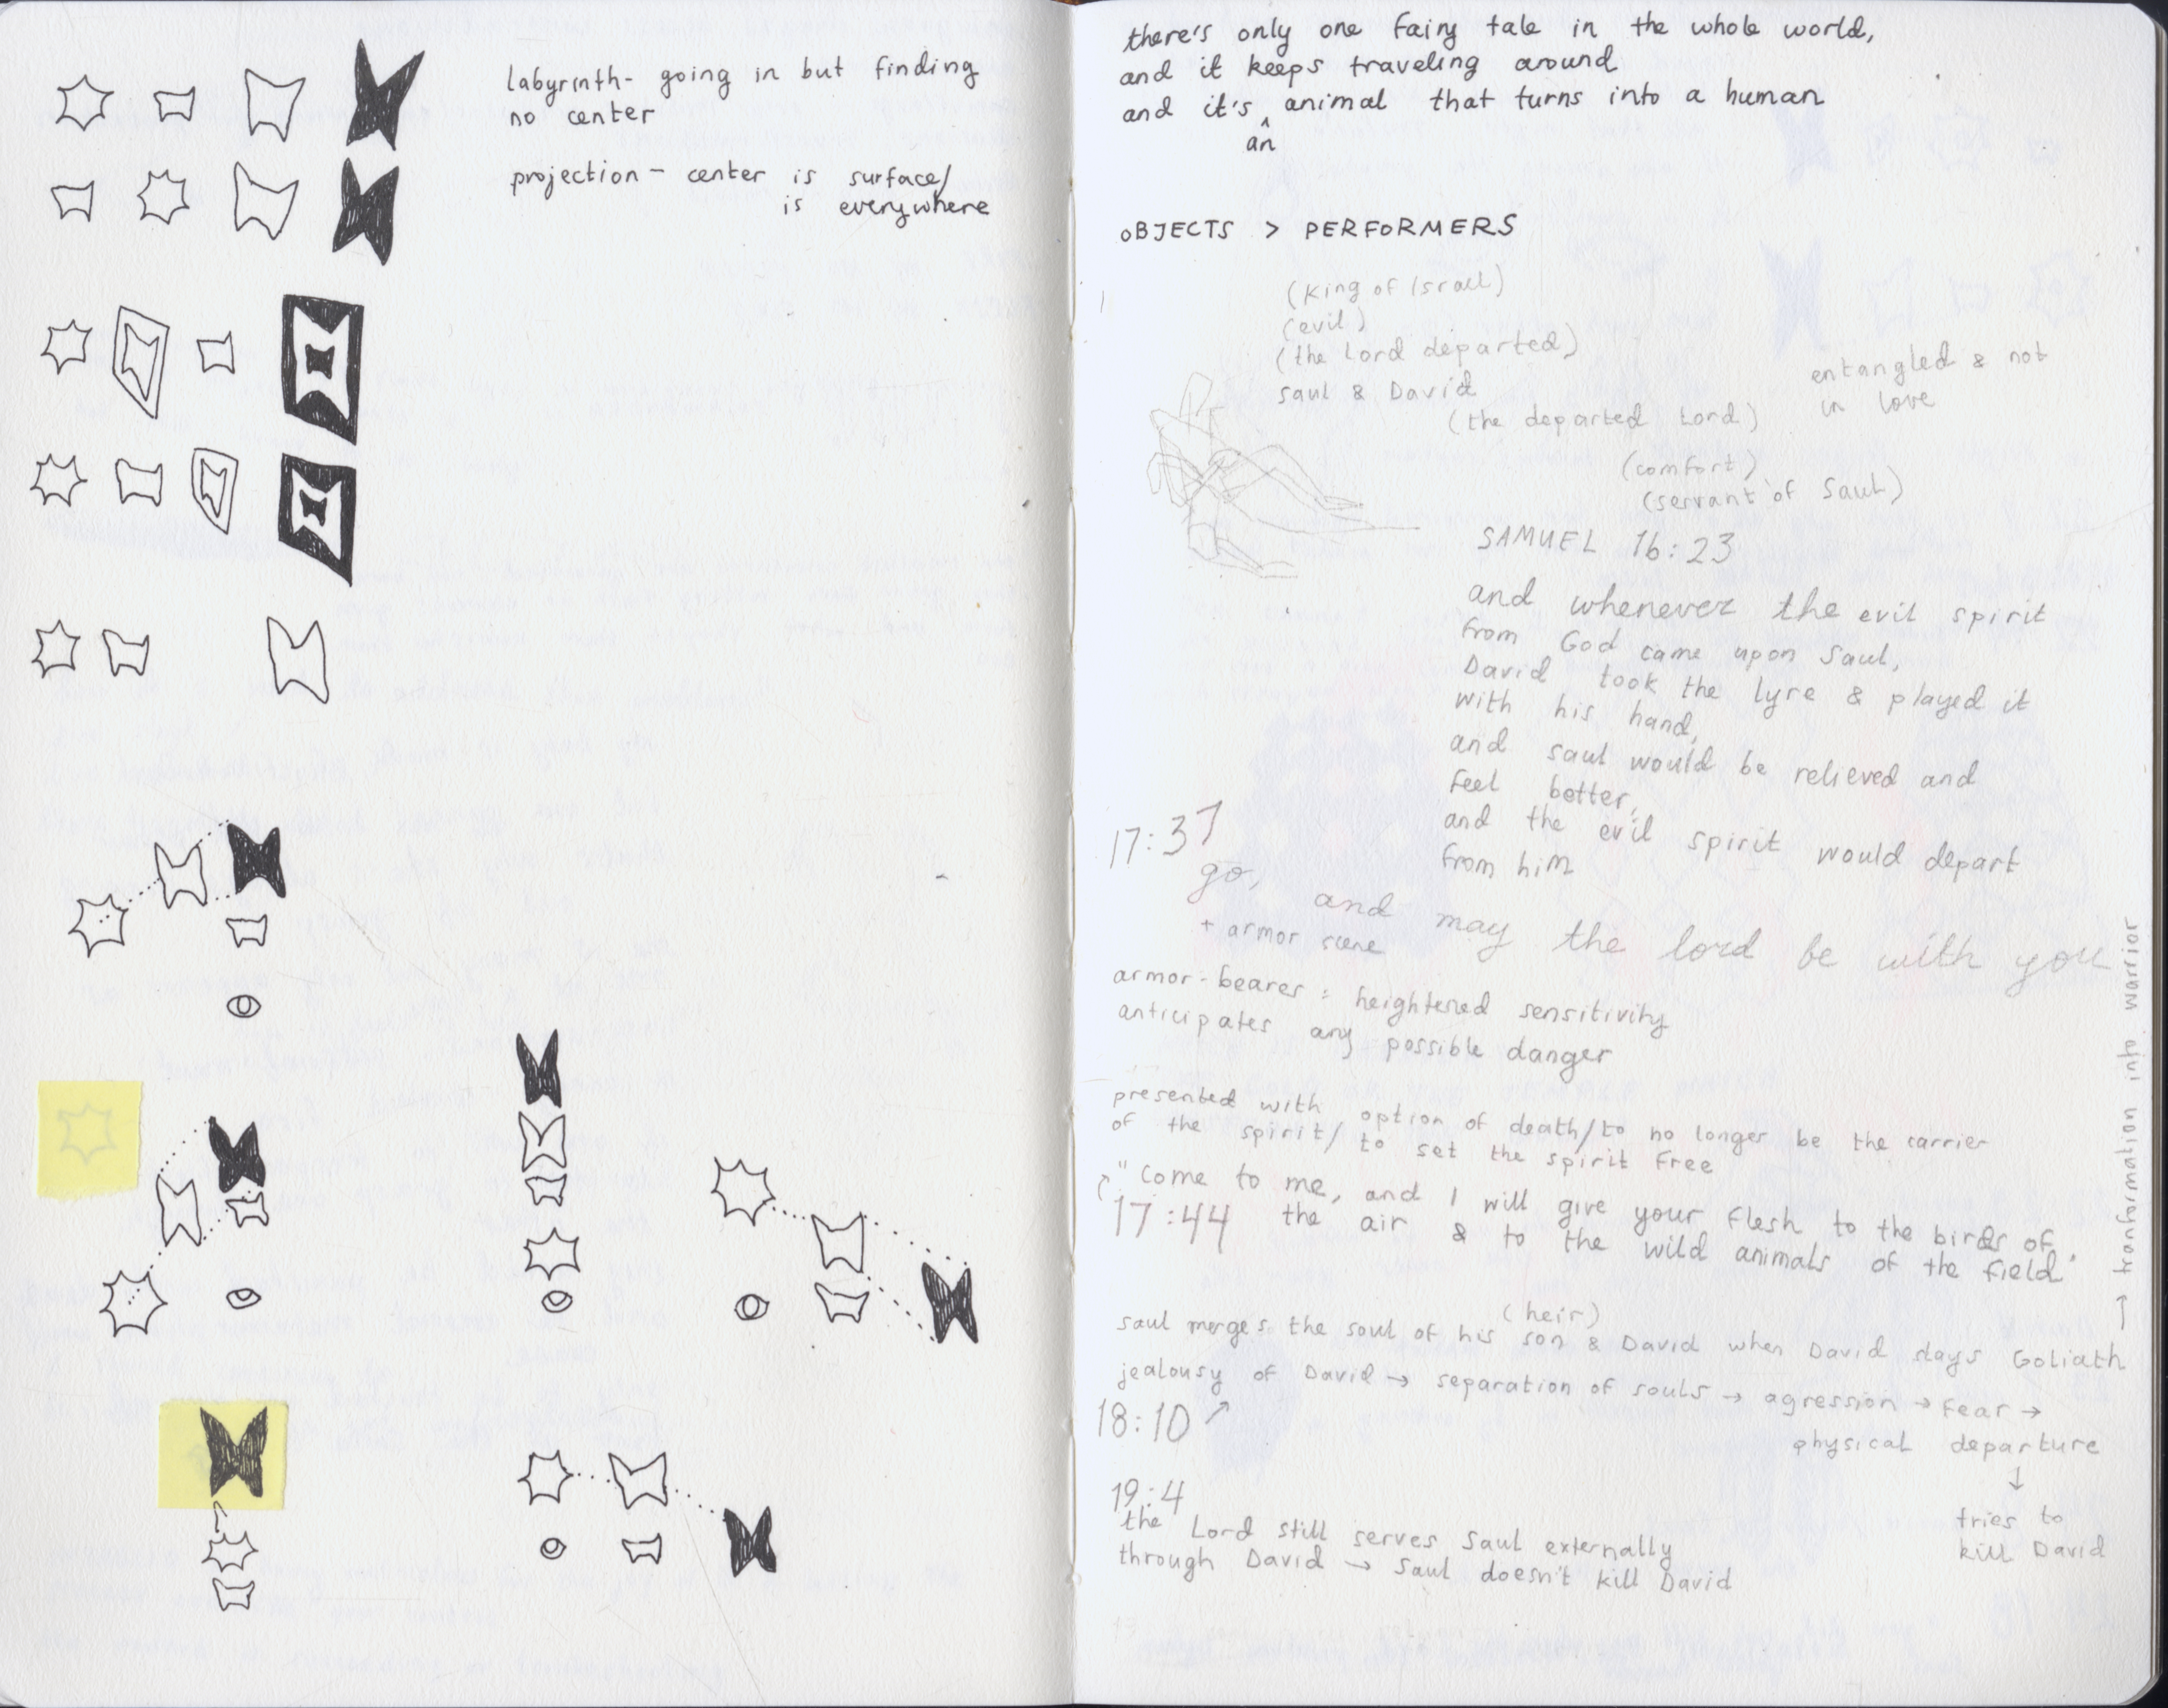 labyrinth- going in but finding
no center
projection - center is surface/
is everywhere
there's only one fairy tale in the whole world,
and it keeps traveling around
and it's ^ animal that turns into a human
an
OBJECTS > PERFORMERS
(King of Israel)
(evil)
(the Lord departed)
Saul & David
(the departed Lord)
entangled & not
in love
(comfort)
(servant of Saul)
SAMUEL 16:23
and whenever the evil spirit
from God came upon Saul,
David took the lyre & played it
with his hand,
and Saul would be relieved and
feel better,
and the evil spirit would depart
from him
17:37
go, and may the lord be with you
+ armor scene
armor-bearer : heightened sensitivity
anticipates any possible danger
presented with option of death/to no longer be the carrier
of the spirit/ to set the spirit free
"come to me, and I will give your flesh to the birds of
17:44 the air & to the wild animals of the field"
(heir)
saul merges the soul of his son & David when David slays Goliath
→ tranformation into warrior
jealousy of David → separation of souls → agression → fear →
18:10
physical departure
↓
tries to
kill David
19:4
the Lord still serves Saul externally
through David → Saul doesn't kill David